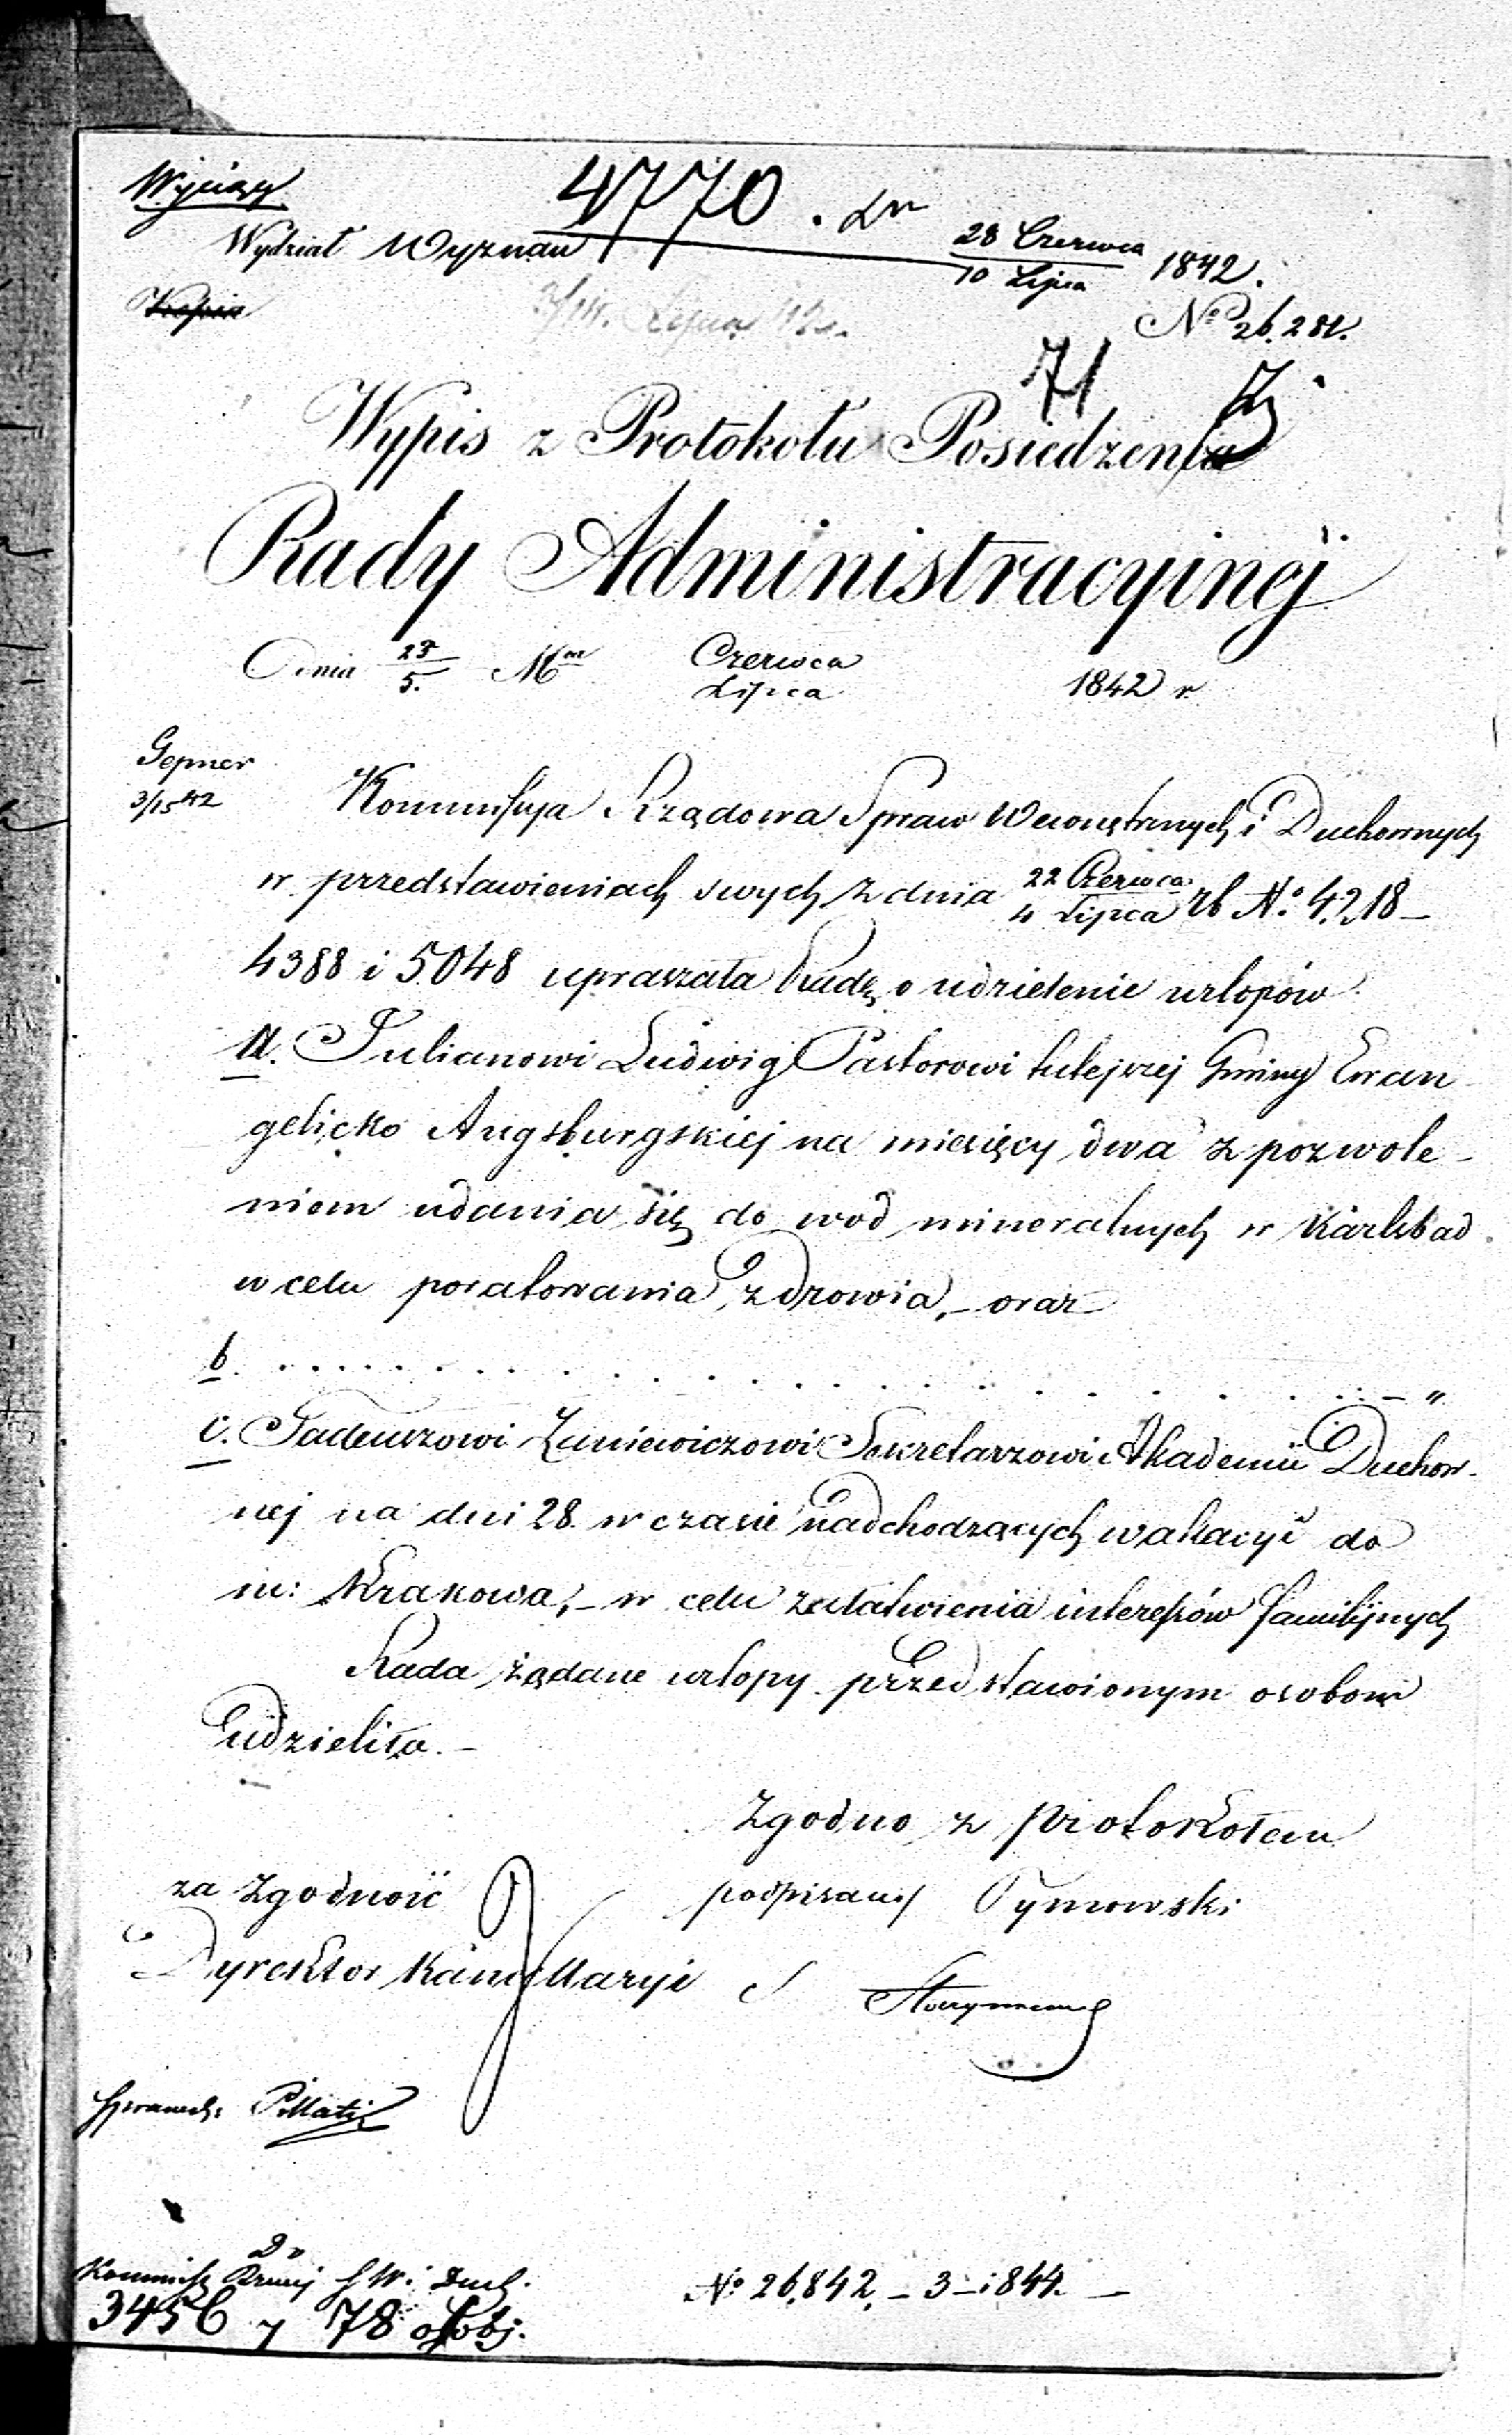 Wyciąg
4770. dn 28 Czerwca / 10 Lipca 1842.
Wydział Wyznań
Kopia
No 26.281.
71
Wypis z Protokołu Posiedzenia
Rady Administracyinéj
Dnia 23/5. Mca Czerwca / Lipca 1842 r.
Gepner
3/15 42
Kommissyja Rządowa Spraw Wewnętrznych i Duchownych
w przedstawieniach swych z dnia 22 Czerwca / 4 Lipca rb No. 4,218 –
4388 i 5048 upraszała Radę o udzielenie urlopów
a. Julianowi Ludwig Pastorowi tutejszej Gminy Ewan
gelicko Augsburgskiej na miesięcy dwa z pozwole-
niem udania się do wod mineralnych w Karlsbad
w celu poratowania zdrowia, – oraz
b. . . . . . . . . . . . . . . . . . . . . . . . . . – „
c. Tadeuszowi Zaniewiczowi Sekretarzowi Akademii Duchow-
nej na dni 28. w czasie nadchodzących wakacyi do
m: Krakowa, – w celu załatwienia interessów familijnych
Rada żądane urlopy przedstawionym osobom
udzieliła. –
Zgodno z protokołem
za zgodność podpisany Tymowski
Dyrektor Kancellaryi
Do
Kommiss Rzowej S W. i Duch.
3456 78
No 26,842, – 3 – 1844. –